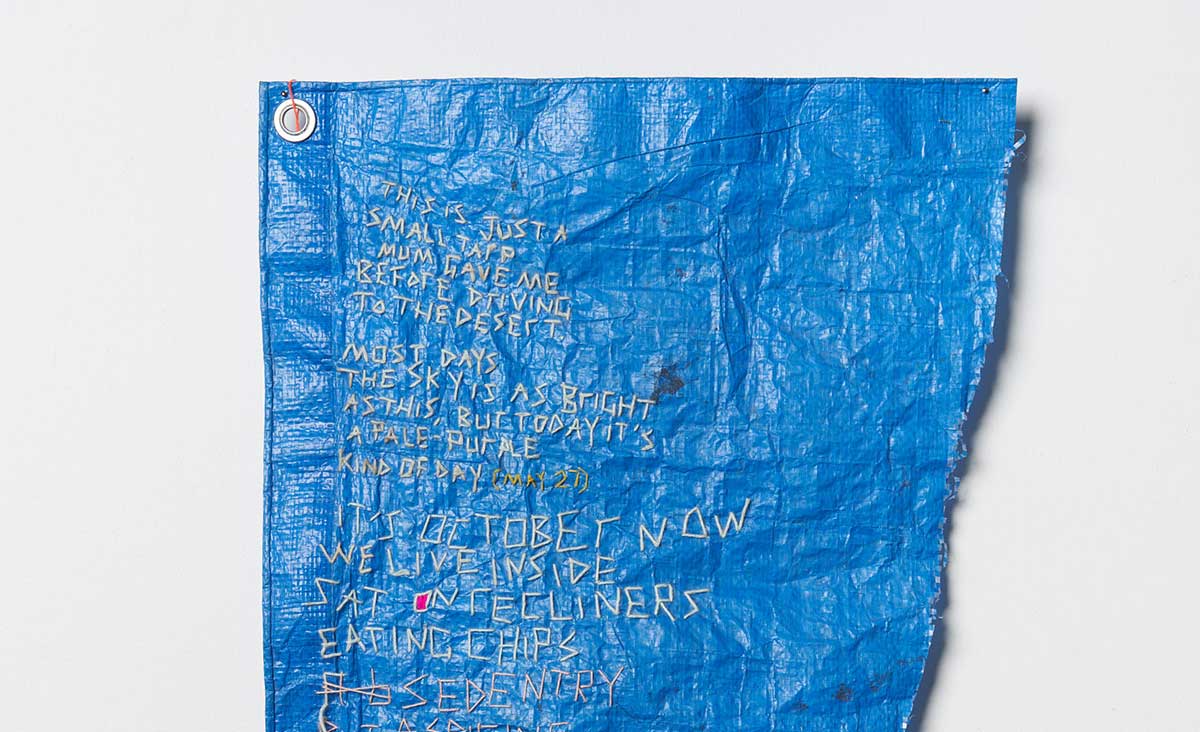 THIS IS JUST A
SMALL TARP
MUM GAVE ME
BEFORE DRIVING
TO THE DESERT
MOST DAYS
THE SKY IS AS BRIGHT
AS THIS, BUT TODAY IT'S
A PALE-PURPLE
KIND OF DAY (MAY 27)
IT'S OCTOBER NOW
WE LIVE INSIDE
SAT ON RECLINERS
EATING CHIPS
SEDENTRY